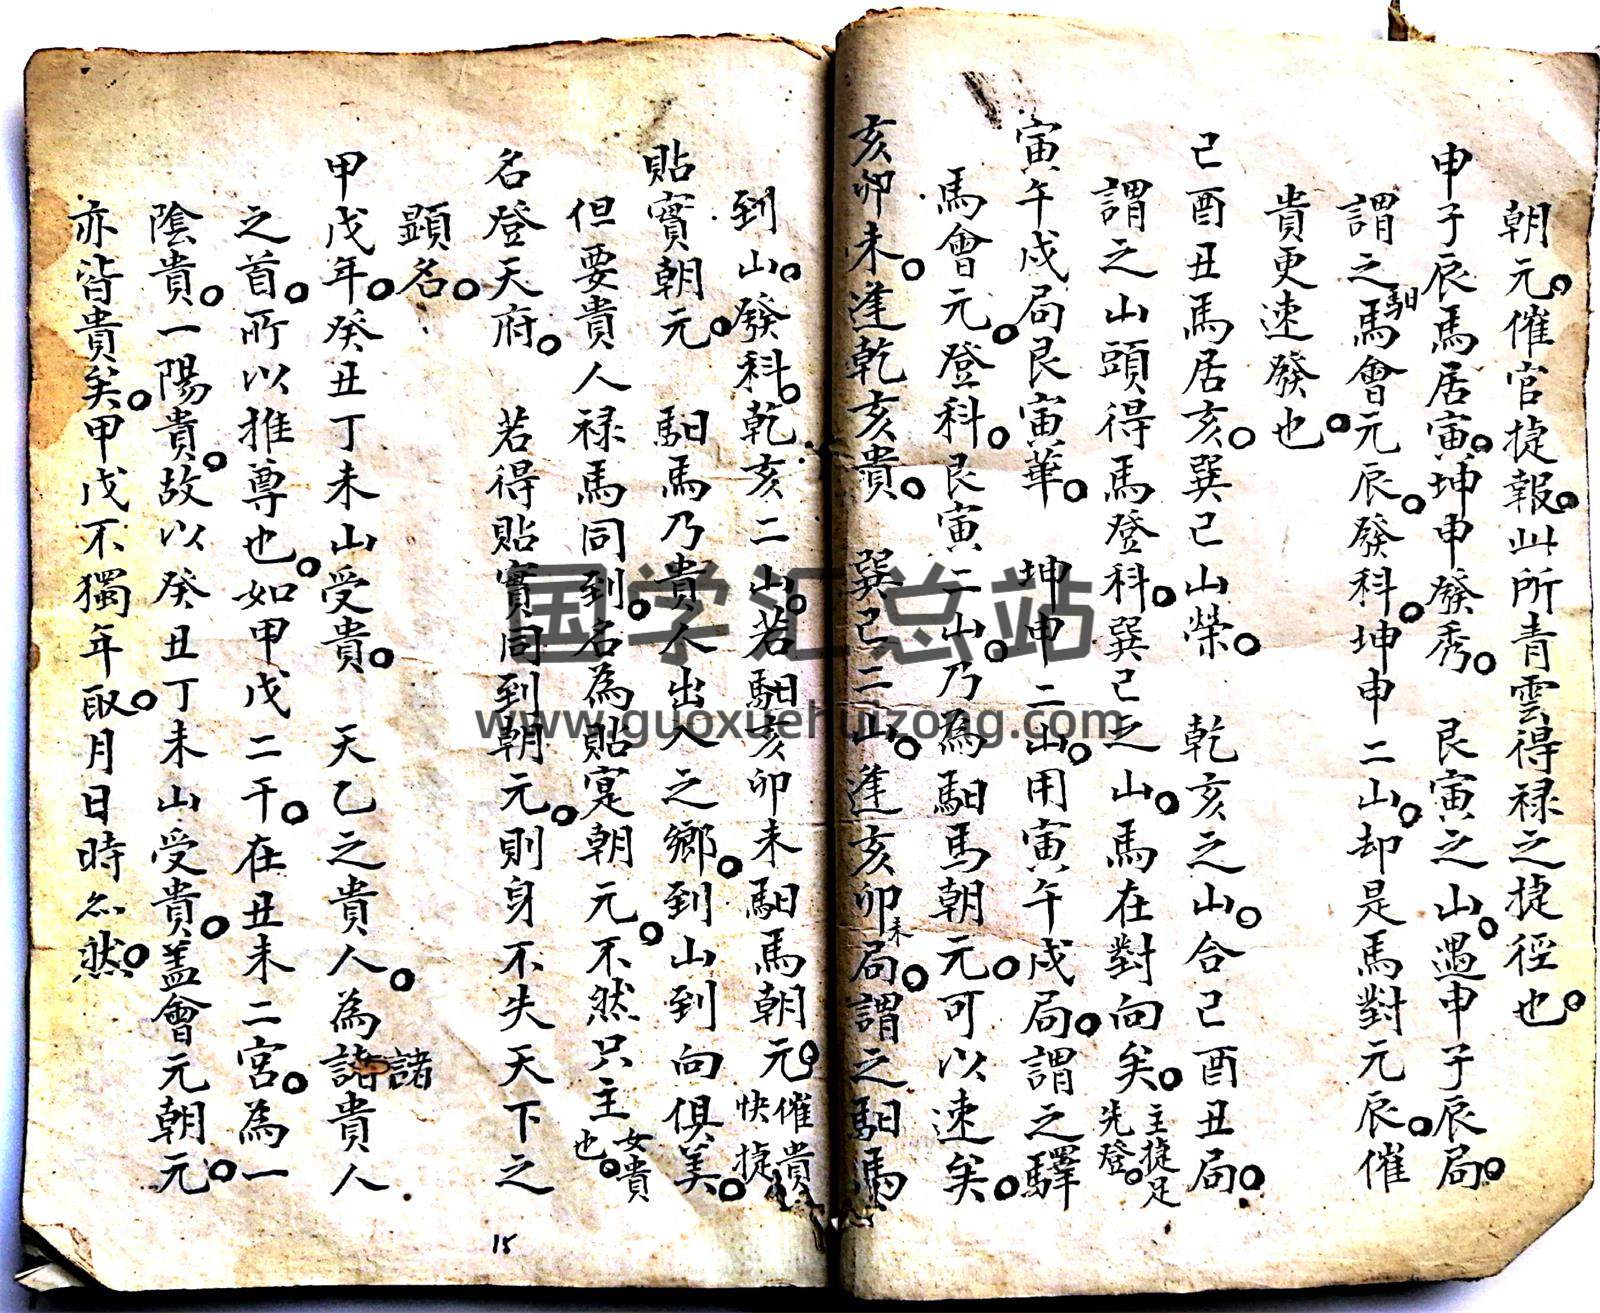 朝元。催官捷報。此所青雲得祿之捷徑也。
申子辰馬居寅。坤申發秀。艮寅之山。遇申子辰局。
謂之馹馬會元辰。發科。坤申二山。却是馬對元辰。催
貴更速發也。
己酉丑馬居亥。巽己山榮。乾亥之山。合己酉丑局。
謂之山頭得馬登科。巽己之山。馬在對向矣。主捷足先登。
寅午戌局艮寅華。坤申二山。用寅午戌局。謂之驛
馬會元。登科。艮寅二山。乃為馹馬朝元。可以速矣。
亥卯未。逢乾亥貴。巽己二山。逢亥卯未局。謂之馹馬
到山。發科。乾亥二山。若馹亥卯未馹馬朝元。催貴快捷
貼實朝元。馹馬乃貴人出入之鄉。到山到向俱美。
但要貴人祿馬同到。名為貼寔朝元。不然只主女貴也。
名登天府。若得貼實同到朝元。則身不失天下之
顯名。
甲戊年。癸丑丁未山受貴。天乙之貴人。為諸貴人
諸
之首。所以推尊也。如甲戊二干。在丑未二宮。為一
陰貴。一陽貴。故以癸丑丁未山受貴。蓋會元朝元。
亦皆貴矣。甲戊不獨年取。月日時亦然。
15
国学汇总站
www.guoxuehuizong.com